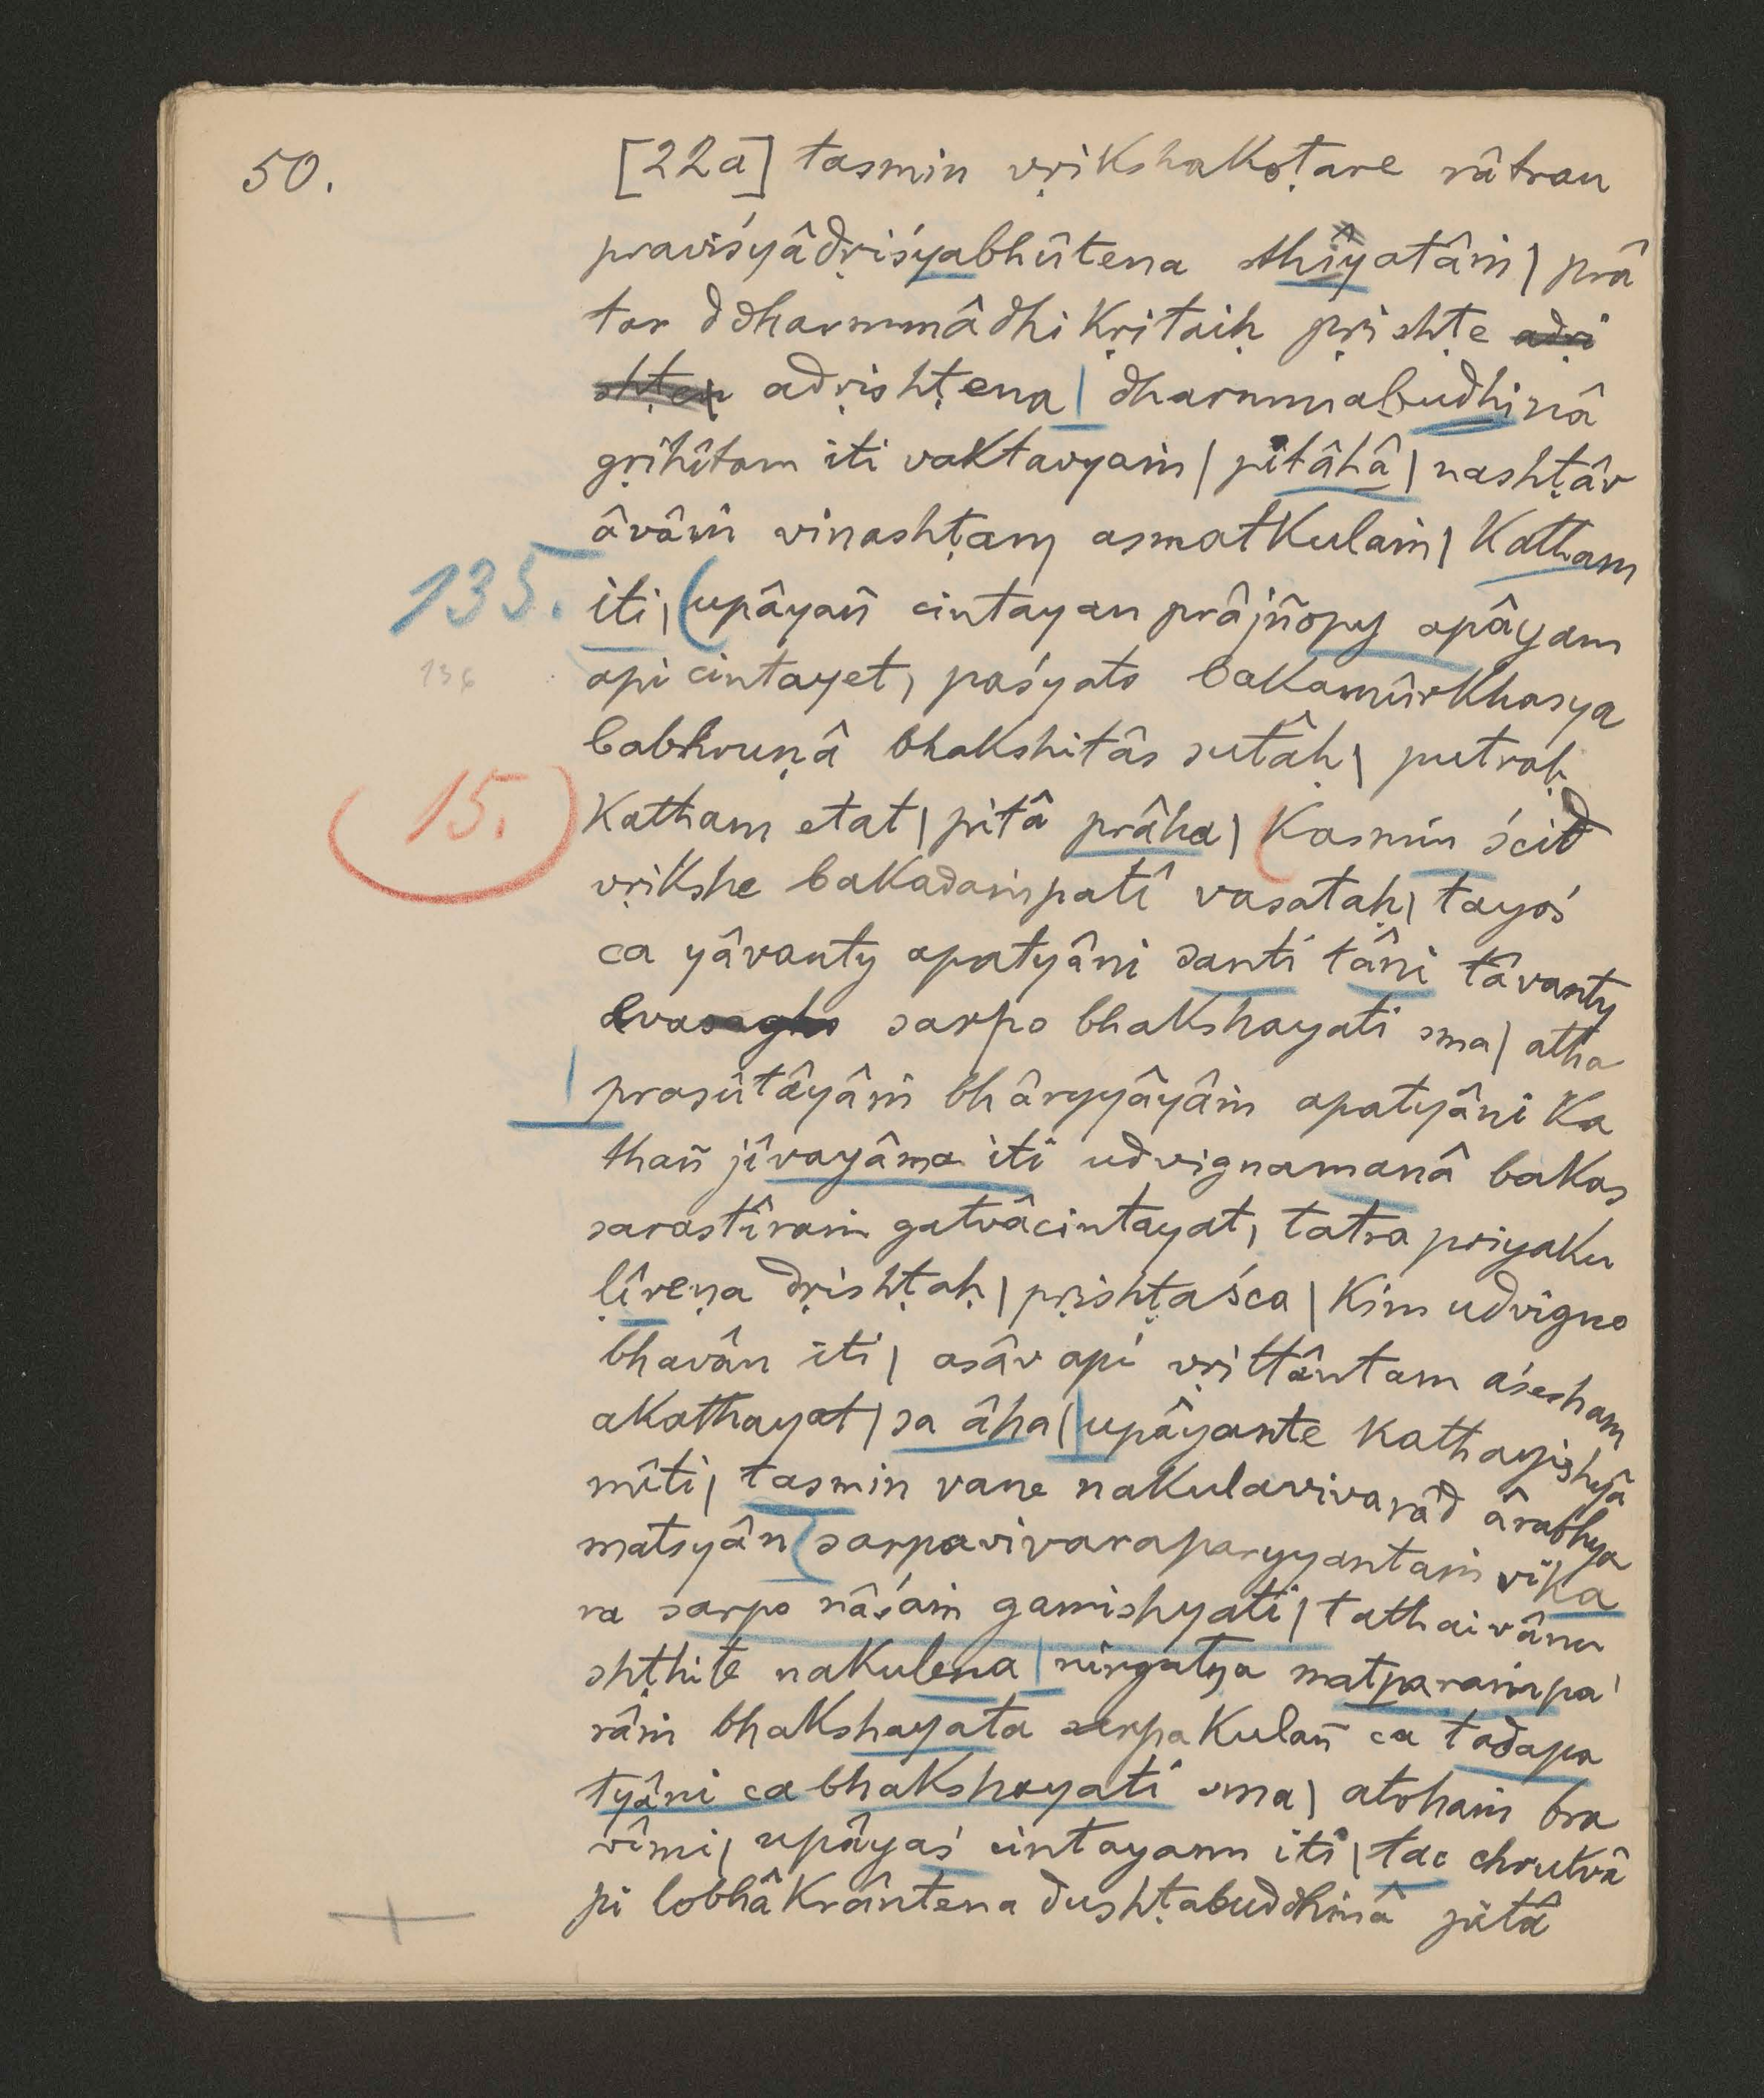 50.
[22a] tasmin vṛikshakoṭare râtrau
praviśyâdṛiśyabhûtena sthîyatâṁ | prâ
tar ddharmmâdhikṛitaiḥ pṛishṭe adṛi
shṭen adṛishṭena | dharmmabudhinâ
gṛihîtam iti vaktavyaṁ | pitâhâ | nashṭâv
âvâṁ vinashṭam asmatkulaṁ | Katham
135. iti | (upâyañ cintayan prâjñopy apâyam
136 api cintayet, paśyato bakamûrkhasya
babhruṇâ bhakshitâs sutâḥ | putraḥ
15. Katham etat | pitâ prâha | Kasmin ścid
vṛikshe bakadaṁpatî vasataḥ | tayoś
ca yâvanty apatyâni santi tâni tâvanty
eva sarpo bhakshayati sma | atha
prasûtâyâṁ bhâryyâyâṁ apatyâni ka
thañ jîvayâma iti udvignamanâ bakas
sarastîraṁ gatvâcintayat, tatra priyaku
ḷîreṇa dṛishṭaḥ | pṛishṭaśca | kim udvigno
bhavân iti | asâv api vṛittântam aśesham
akathayat | sa âha | upâyante kathayishyâ
mîti | tasmin vane nakulavivarâd ârabhya
matsyân sarpavivaraparyyantaṁ vika
ra sarpo nâśaṁ gamishyati | tathaivânu
shṭhite nakulena | nirgatya matparaṁpa
râṁ bhakshayata sarpakulañ ca tadapa
tyâni ca bhakshayati sma | atohaṁ bra
vîmi | upâyaś cintayann iti | tac chrutvâ
pi lobhâkrântena dushṭabuddhinâ pitâ